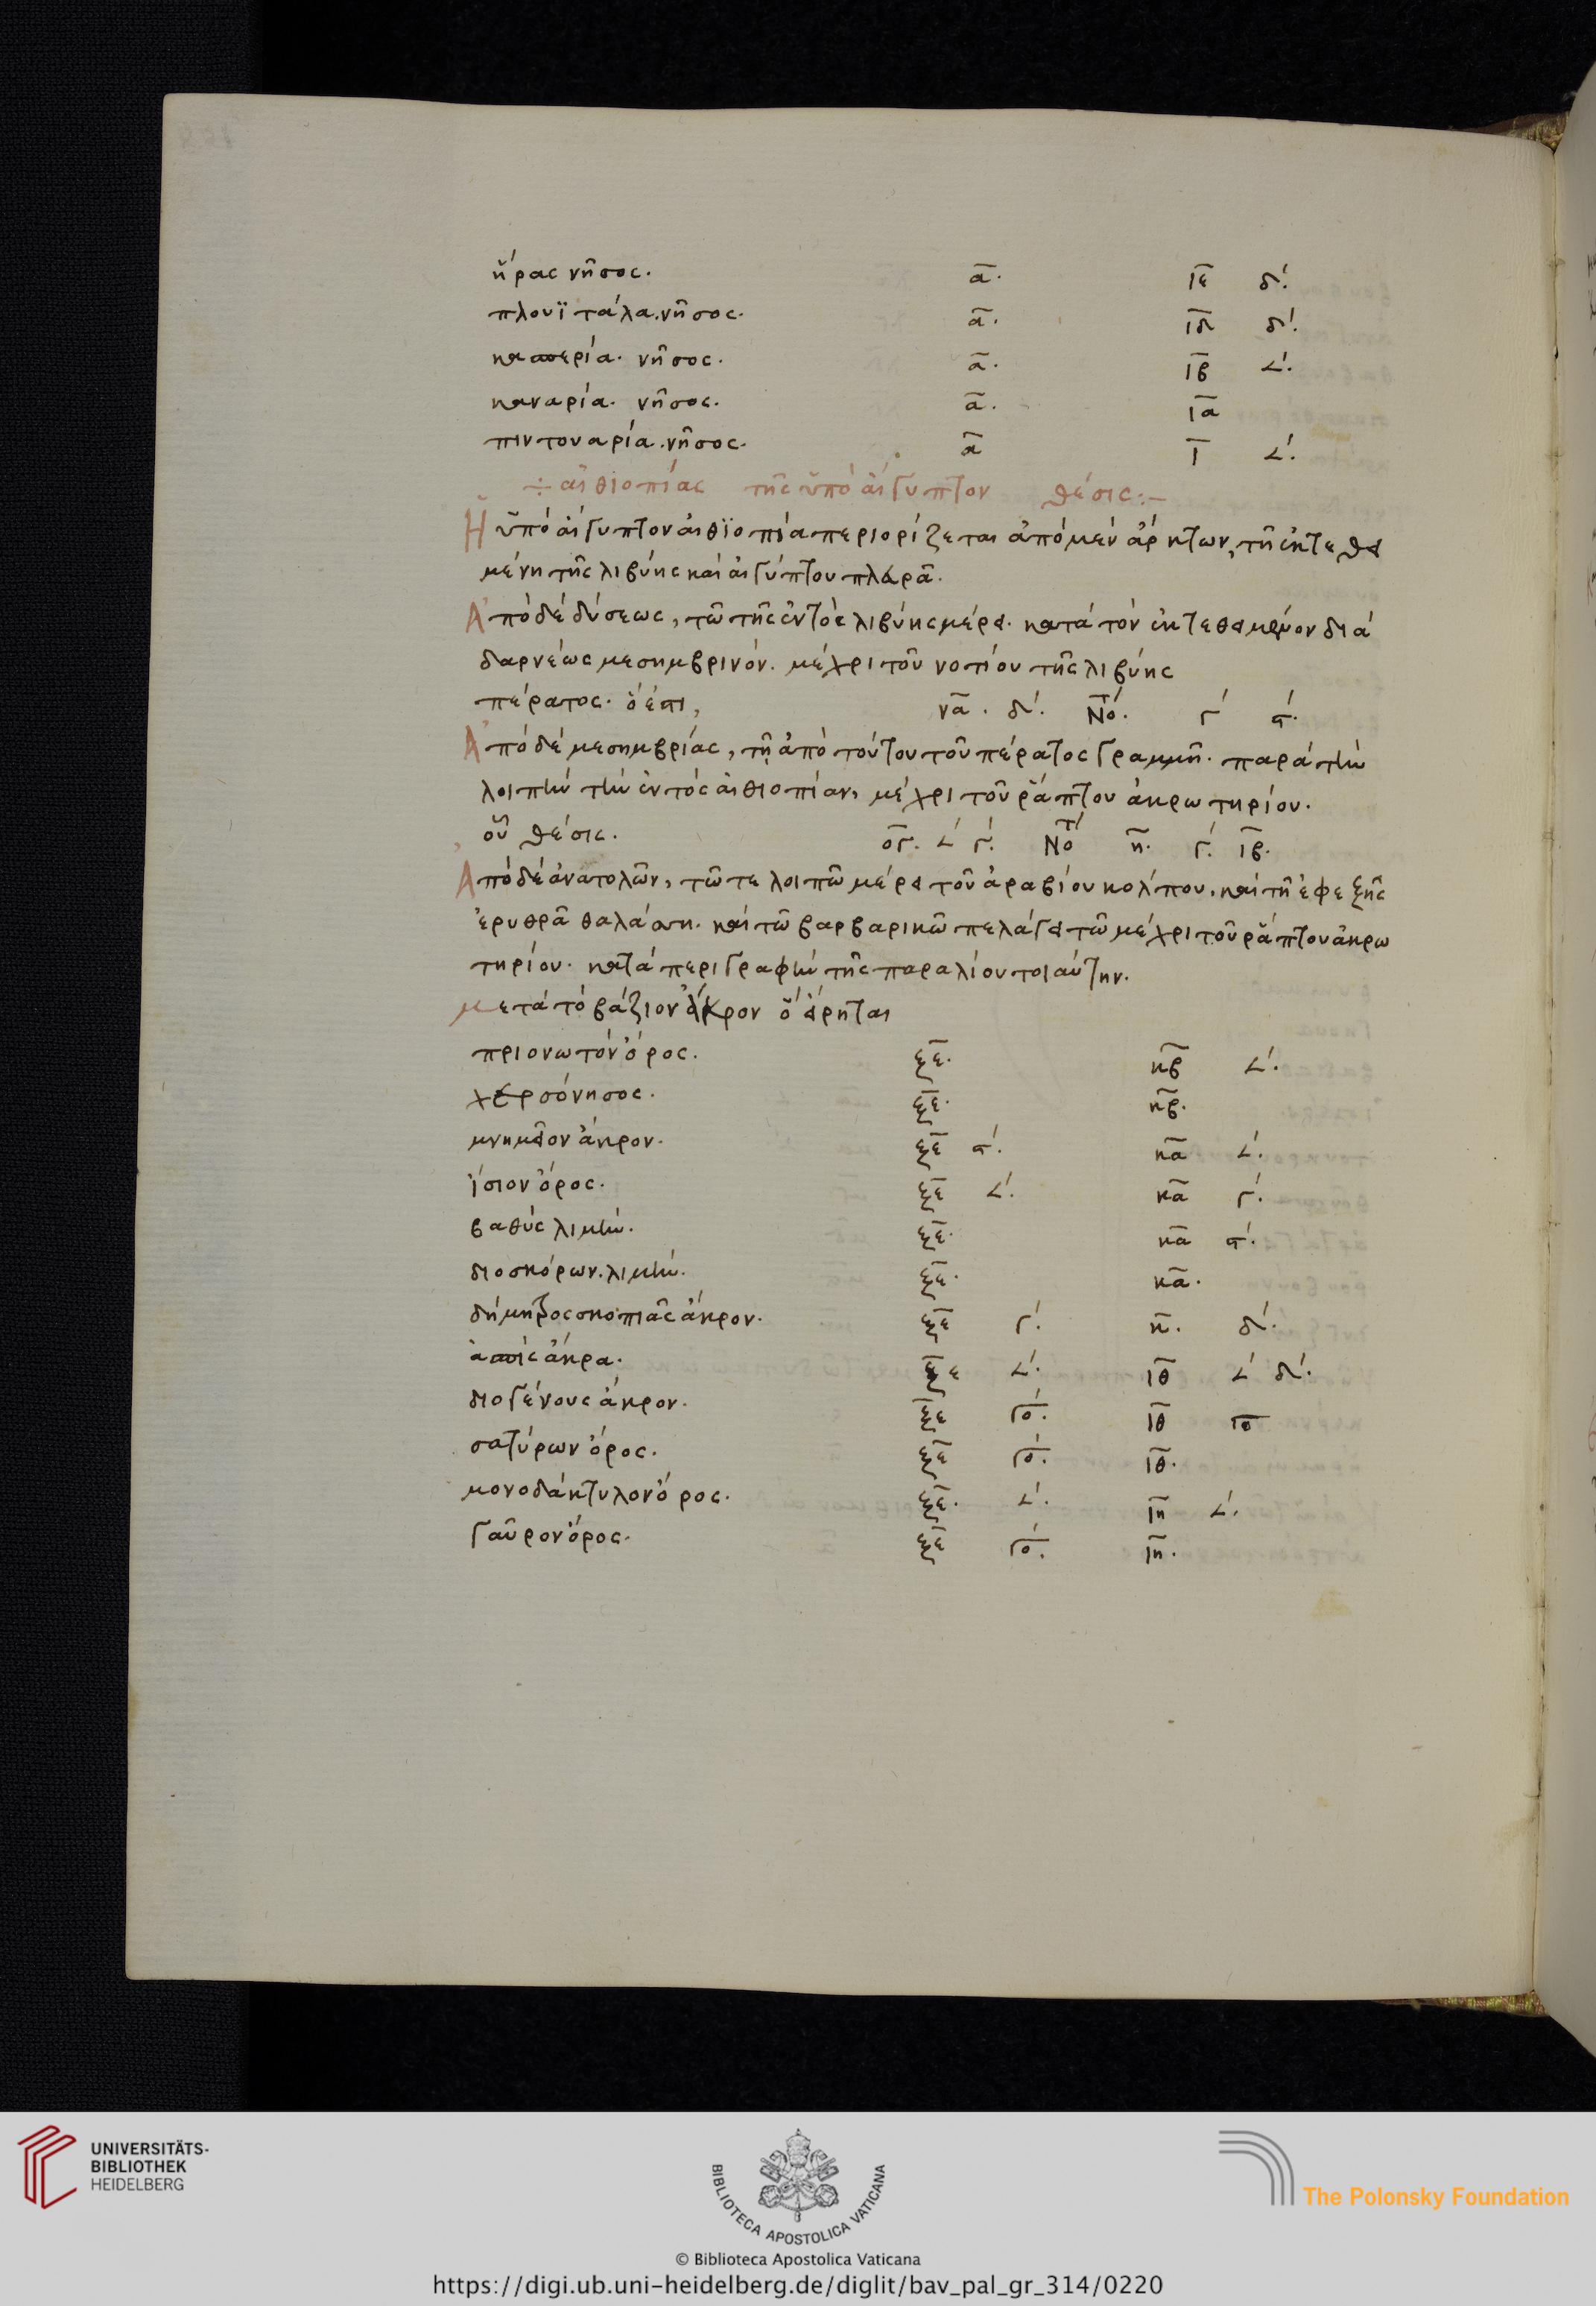 ἥρας νῆσος. α. ιε δ.
πλουϊτάλα. νῆσος. α. ιδ δ.
κασπερία. νῆσος. α. ιβ 𐅵.
καναρία. νῆσος. α. ια
πιντουαρία. νῆσος. α ι 𐅵.
÷ αἰθιοπίας τῆς ὑπὸ αἴγυπτον θέσις :–
Ἡ ὑπὸ αἴγυπτον αἰθϊοπία περιορίζεται ἀπὸ μὲν ἄρκτων, τῆ ἐκτεθει
μένη τῆς λιβύης καὶ αἰγύπτου πλευρᾶ.
Ἀπὸ δὲ δύσεως, τῶ τῆς ἐντὸς λιβύης μέρει. κατὰ τὸν ἐκτεθειμένον διὰ
δαρνέως μεσημβρινόν. μέχρι τοῦ νοτίου τῆς λιβύης
πέρατος. ὃ ἐστι, να. δ. Νό. γ ϛ.
Ἀπὸ δὲ μεσημβρίας, τῇ ἀπὸ τούτου τοῦ πέρατος γραμμῆ. παρὰ τὴν
λοιπὴν τὴν ἐντὸς αἰθιοπίαν, μέχρι τοῦ ῥάπτου ἀκρωτηρίου.
οὗ θέσις. ογ. 𐅵 γ. Νό η. γ. ιβ.
Ἀπὸ δὲ ἀνατολῶν, τῶ τε λοιπῶ μέρει τοῦ ἀραβίου κολπου. καὶ τῆ ἐφεξῆς
ἐρυθρᾶ θαλάσση. καὶ τῶ βαρβαρικῶ πελάγει τῶ μέχρι τοῦ ῥάπτου ἀκρω
τηρίου. κατὰ περιγραφὴν τῆς παραλίου τοιαύτην.
μετὰ τὸ βάζιον ἄκρον ὃ εἴρηται
πριονωτὸν ὄρος. ξε. κβ 𐅵.
χερσόνησος. ξε. κβ.
μνημεῖον ἄκρον. ξε ϛ. κα 𐅵.
ἴσιον ὄρος. ξε 𐅵. κα γ.
βαθὺς λιμήν. ξε. κα ϛ.
διοσκόρων. λιμήν. ξε. κα.
δήμητρος σκοπιᾶς ἄκρον. ξε γ. κ. δ.
ἀσπὶς ἄκρα. ξε 𐅵. ιθ 𐅵 δ.
διογένους ἄκρον. ξε γο. ιθ γο
σατύρων ὄρος. ξε γο. ιθ.
μονοδάκτυλον ὄρος. ξε. 𐅵. ιη 𐅵.
γαῦρον ὄρος. ξε γο. ιη.
UNIVERSITÄTS-
BIBLIOTHEK
HEIDELBERG
BIBLIOTECA APOSTOLICA VATICANA
The Polonsky Foundation
© Biblioteca Apostolica Vaticana
https://digi.ub.uni-heidelberg.de/diglit/bav_pal_gr_314/0220